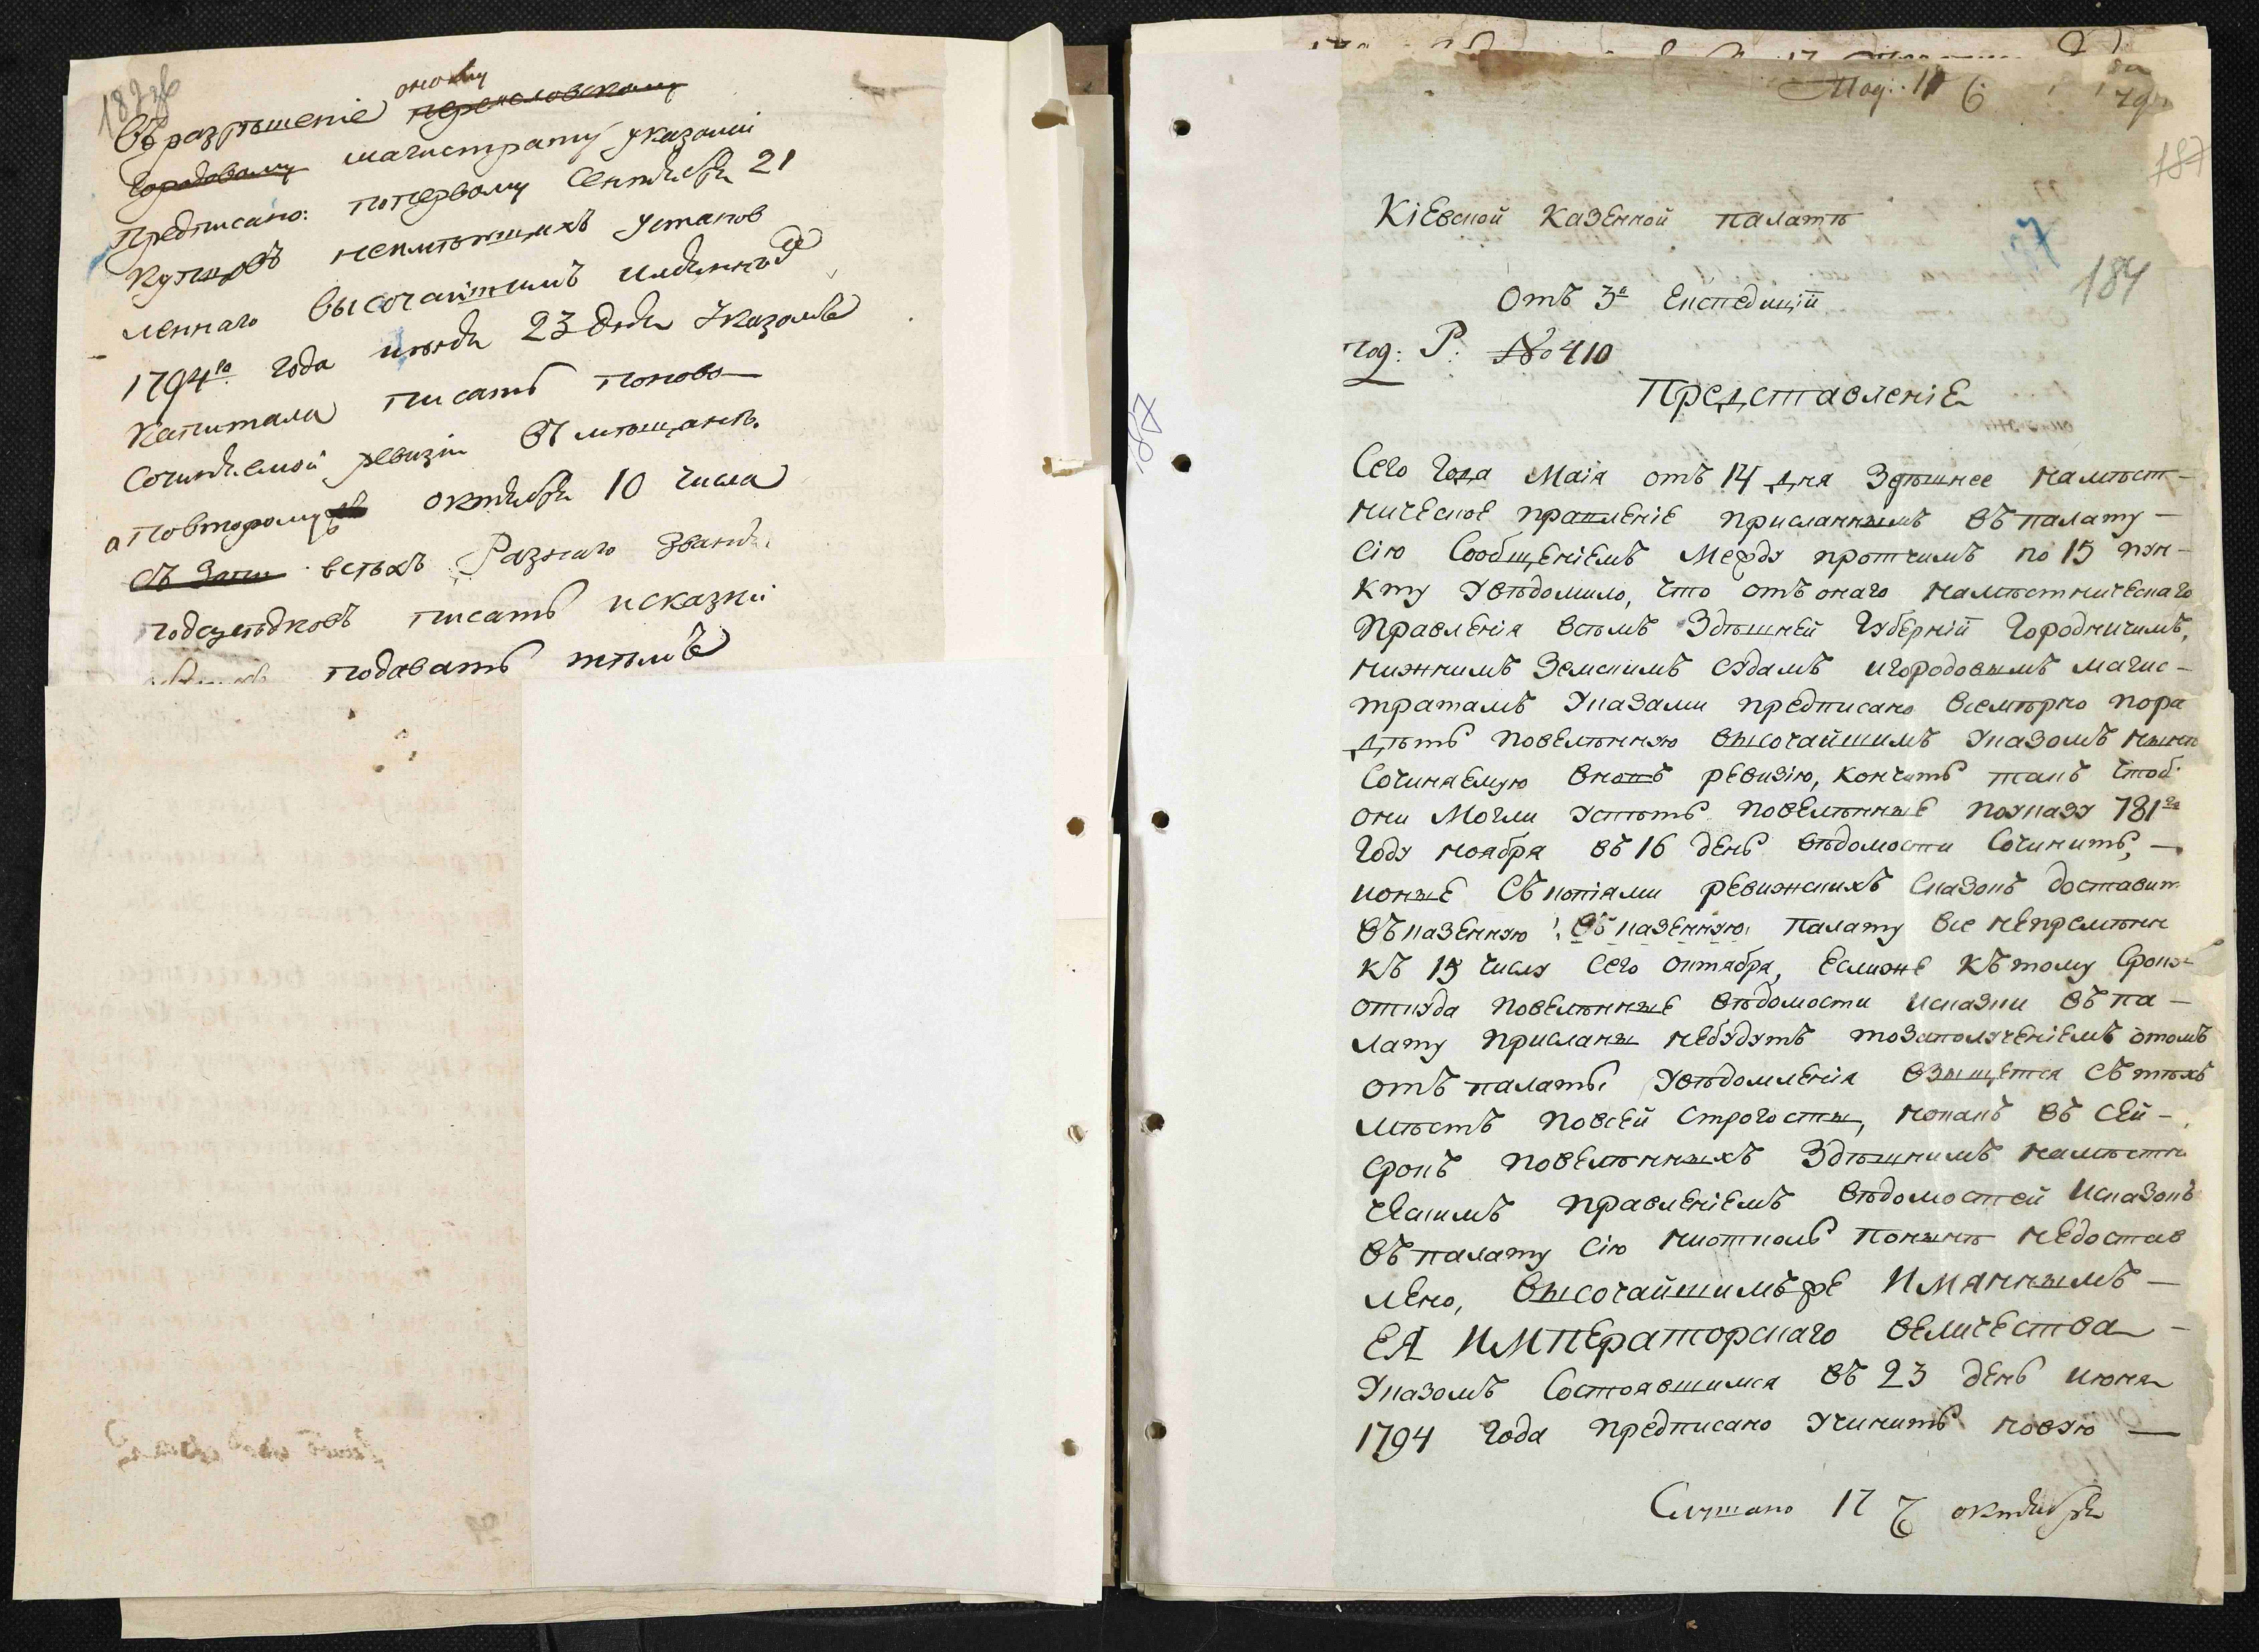 182 зв
оному
Въ разрѣшеніе переясловскому
городовому магистрату указами
предписано: поперьвому сентября 21
купцовъ неимѣющихъ установ
леннаго высочайшимъ имяннымъ
1794го года июня 23 дня указомъ
капитала писать поново
сочиняемой ревизіи въ мещане.
а повторому октября 10 числа
съ запи всѣхъ разнаго званія
подсусѣдковъ писать исказки
подавать тѣмъ
187
184
187
Кіевской Казенной палатѣ
Отъ 3й Експедицій
№ 410
Представленіе
Сего года Маія отъ 14 дня Здѣшнее намѣст-
ническое правленіе присланнымъ въ палату -
сію Сообщеніемъ Между протчимъ по 15 пун-
кту увѣдомило, что отъ онаго намѣстническаго
Правленія всѣмъ Здѣшней Губерній Городничимъ,
нижнимъ Земскимъ судамъ игородовымъ магис-
тратамъ Указами предписано всемѣрно пора
дѣть повелѣнную высочайшимъ указомъ нынѣ
Сочиняемую вновь ревизію, кончить такъ чтоб
они Могли успѣть повелѣнные поуказу 781го
году ноября въ 16 день вѣдомости Сочинить, -
ионые Съ копіями ревижскихъ Сказокъ доставит
въ казенную въ казенную палату все непремѣнн
къ 15 числу сего октября, еслижъ къ тому сроку
откуда повелѣнные вѣдомости исказки въ па-
лату присланы небудутъ тозаполученіемъ отомъ
отъ палаты увѣдомленія взыщется съ тѣхъ
мѣстъ повсей строгосты, нокакъ въ сей -
срокъ повелѣнныхъ Здѣшнимъ намѣстни
ческимъ правленіемъ вѣдомостей исказокъ
въ палату сію ниотколь понынѣ недостав
лено, высочайшимъже Имяннымъ -
ЕЯ ИМПЕраторскаго величества -
Указомъ Состоявшимся въ 23 день июня
1794 года предписано учинить новую -
Слушано 17 октября